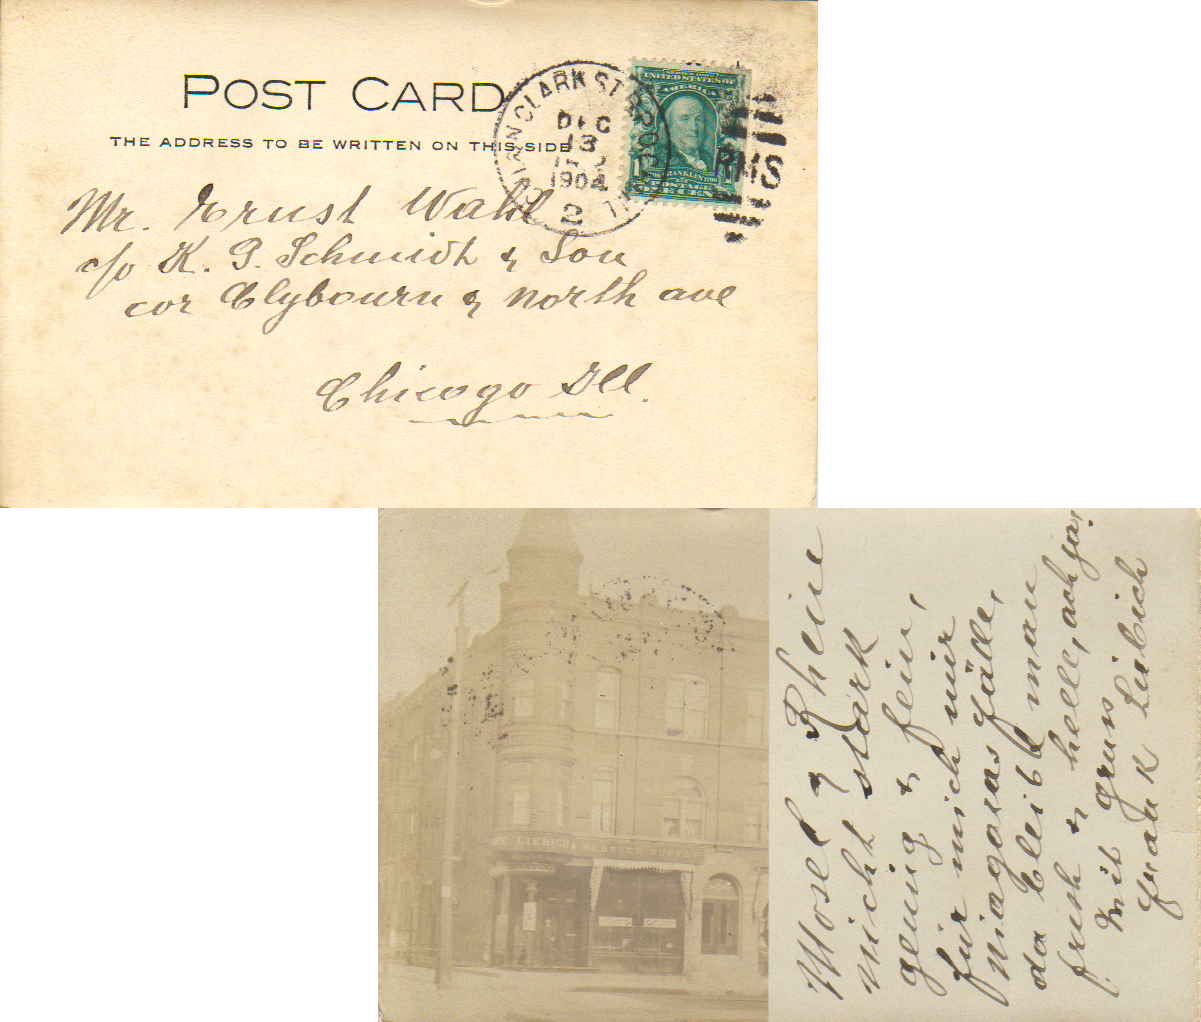 POST CARD
THE ADDRESS TO BE WRITTEN ON THIS SIDE
CLARK ST
DEC
13
1904
2
UNITED STATES OF
AMERICA
FRANKLIN
POSTAGE
ONE CENT
RHS
Mr. Ernst Wahl
c/o K. P. Schmidt & Son
cor Clybourn & North ave
Chicago Ill.
LIEBICH
Mosel & Rhein
nicht stark
genug & fein,
für mich nur
Niagaras fälle,
da bleibt man
frish & helle, ach ja!
Mit gruss
Frank Liebich